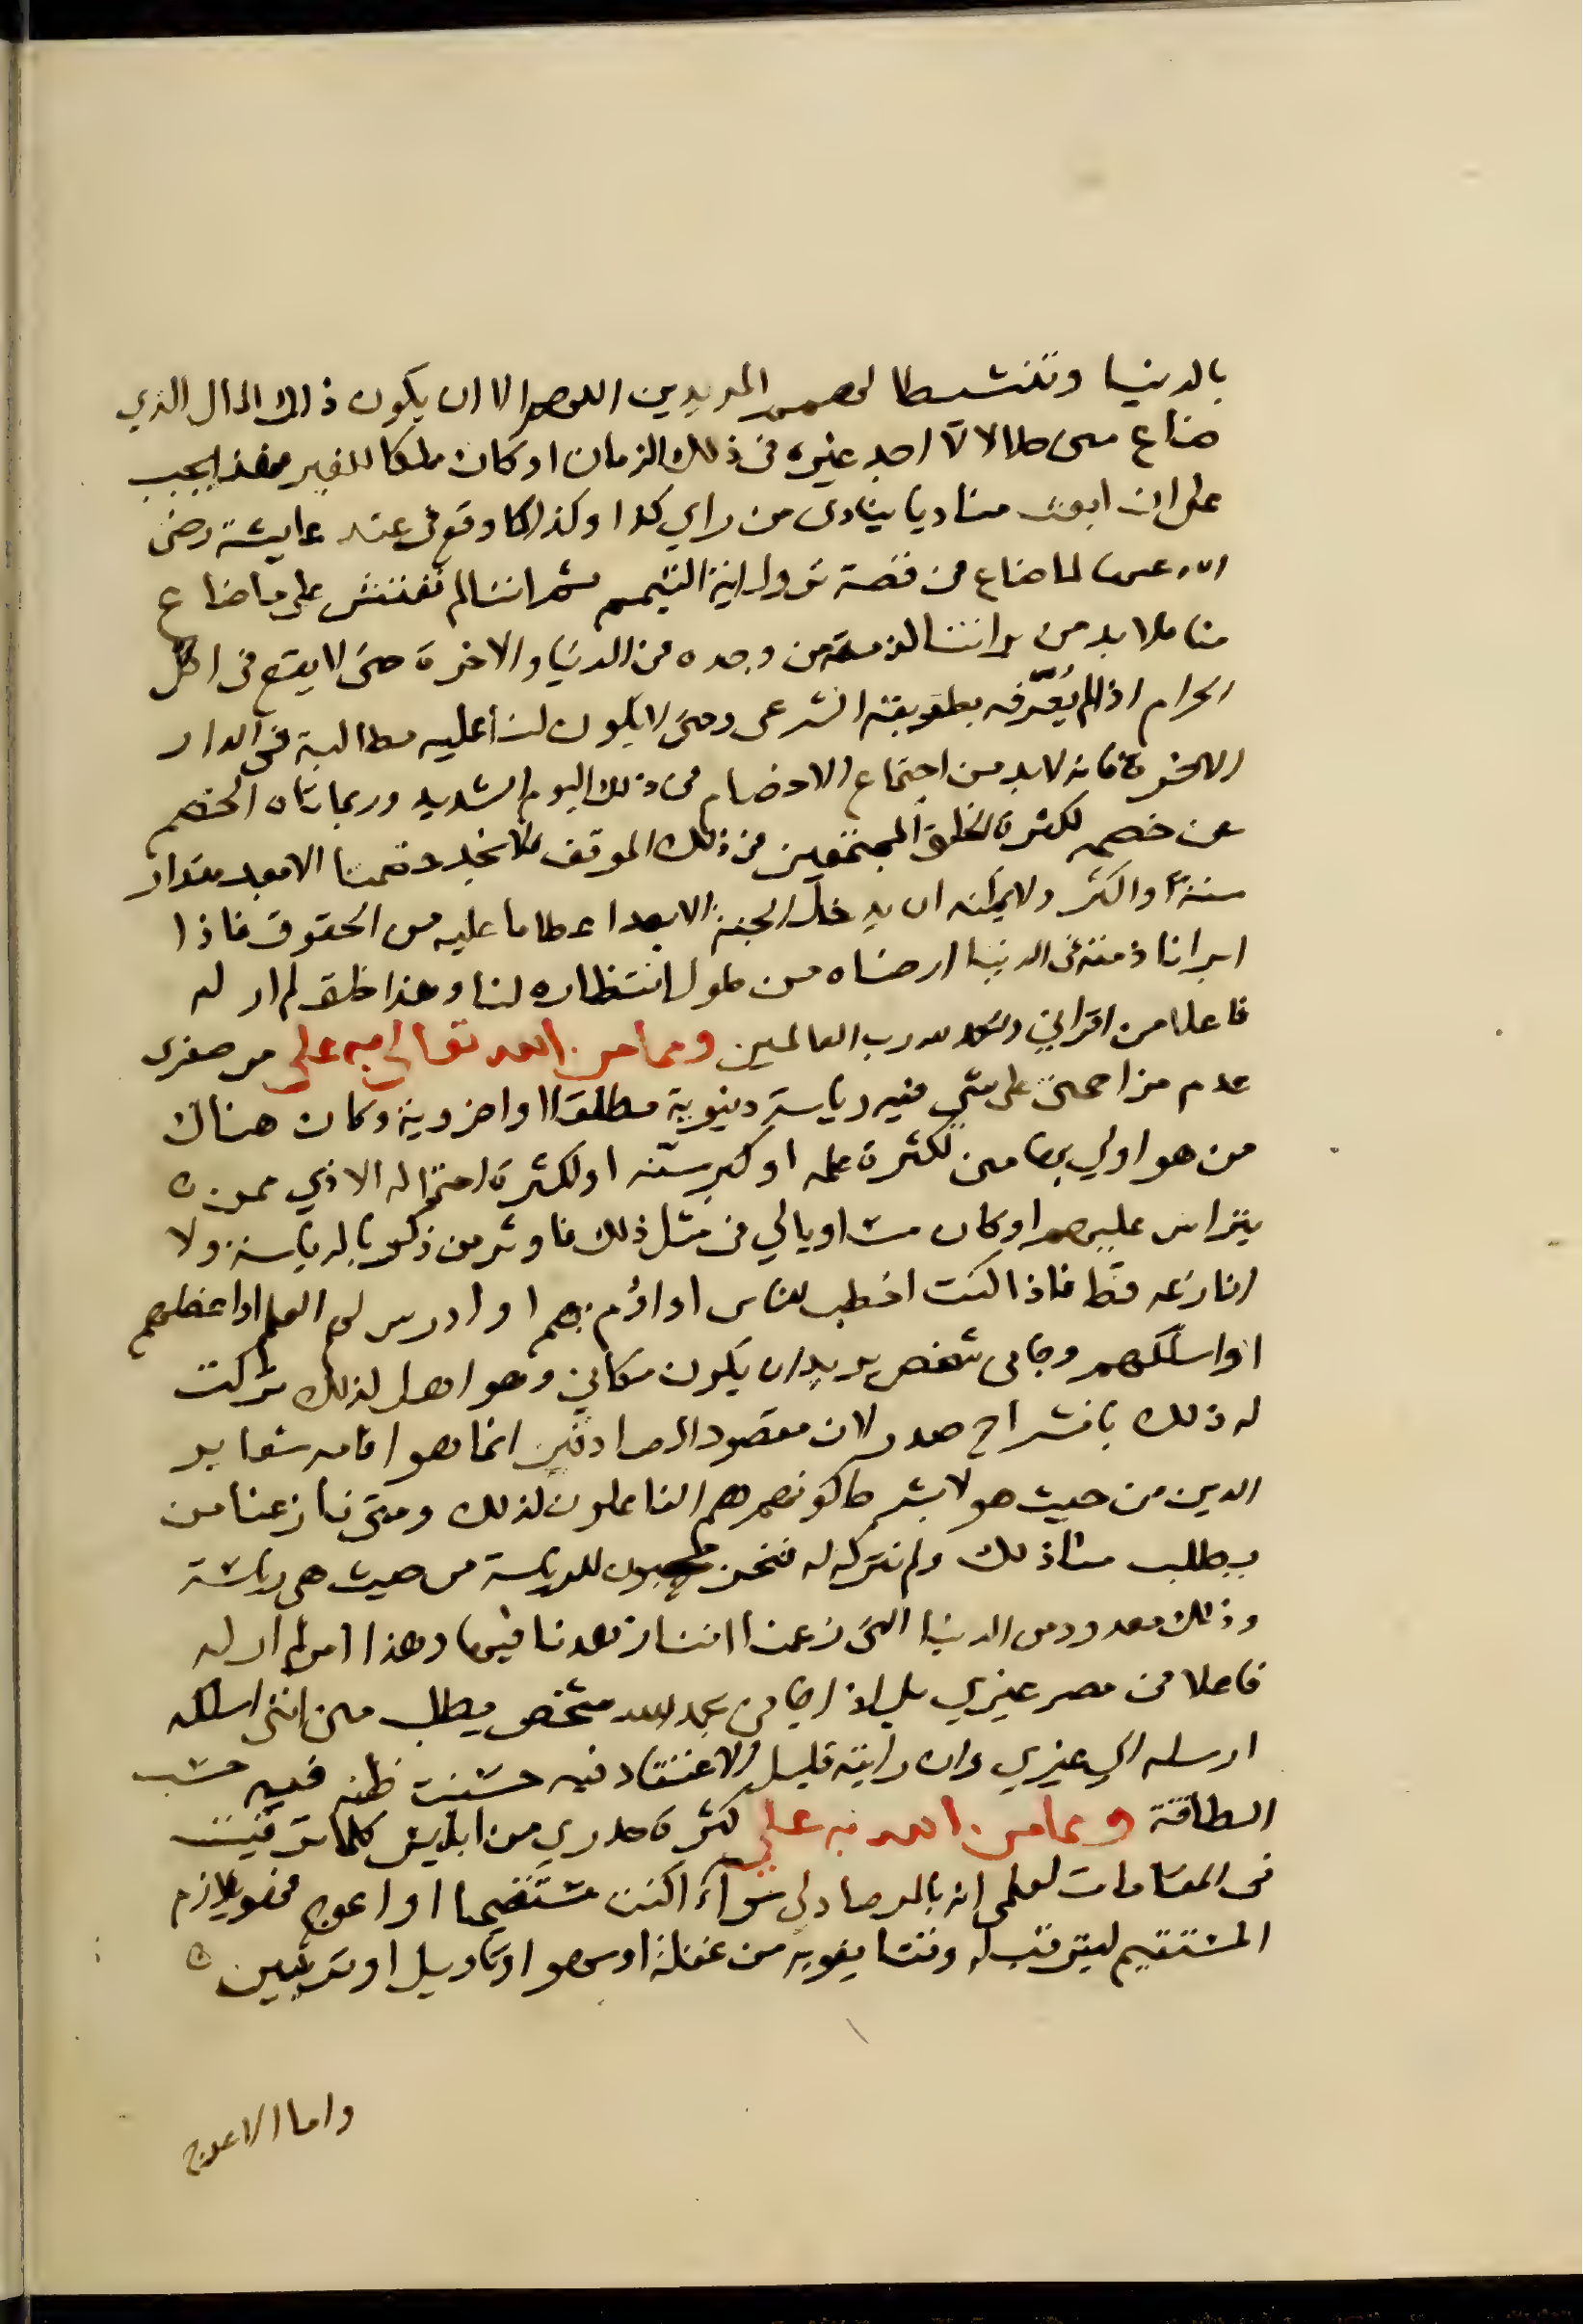 بالدنيا وتنشيطا لهمم المريدين اللهم الا ان يكون ذلك المال الذي
ضاع مني حلالا لا اجد غيره في ذلك الزمان او كان ملكا للغير فهذا يجب
علي ان ابعث مناديا ينادي من راي كذا وكذا كما وقع في عقد عايشة رضى
الله عنها لما ضاع في قصة نزول اية التيمم ثم اننا لم نفتش على ما ضاع
منا فلا بد من براتنا لذمة من وجده في الدنيا والاخرة حتى لا يقع في اكل
الحرام اذا لم يُعرّفه بطريقه الشرعى وحتى لا يكون لنا عليه مطالبة في الدار
الاخرة فانه لا بد من اجتماع الاخصام في ذلك اليوم الشديد وربما تاه الخصم
عن خصمه لكثرة الخلق المجتمعين في ذلك الموقف فلا يجد خصمنا الا بعد مقدار
سنة او اكثر ولا يمكنه ان يدخل الجنة الا بعد اعطا ما عليه من الحقوق فاذا
ابرانا ذمته في الدنيا ارحناه من طول انتظاره لنا وهذا خلق لم ار له
فاعلا من اقراني والحمد لله رب العالمين ومما من الله تعالى به على من صغرى
عدم مزاحمتى على شي فيه رياسة دنيوية مطلقا او اخروية وكان هناك
من هو اولي بها منى لكثرة علمه او كبر سنه او لكثرة احتماله الاذي ممن
يتراس عليهم او كان مساويا لي في مثل ذلك فاوثر من ذكر بالرياسة ولا
انازعه قط فاذا كنت اخطب للناس او اؤم بهم او ادرس لهم العلم او اعظهم
او اسلكهم وجاني شخص يريد ان يكون مكاني وهو اهل لذلك تركت
له ذلك بانشراح صدر لان مقصود الصادقين انما هو اقامه شعاير
الدين من حيث هو لا بشرط كونهم هم الفاعلون لذلك ومتى نازعنا من
يطلب منا ذلك ولم نتركه له فنحن محبون للرياسة من حيث هي رياسة
وذلك معدود من الدنيا التي زعمنا اننا زهدنا فيها وهذا امر لم ار له
فاعلا في مصر غيري بل اذا جاني بحمد الله شخص يطلب منى انني اسلكه
ارسله الي غيري وان رايته قليل الاعتقاد فيه حسنت ظنه فيه حسب
الطاقة ومما من الله به علي كثرة حذري من ابليس كلما ترقيت
في المقامات لعلمي انه بالمرصاد لي سواء اكنت مستقيما او اعوج فهو يلازم
المستقيم ليترقب له وقتا يغويه من غفلة او سهو او تاويل او تزيين
واما الاعوج